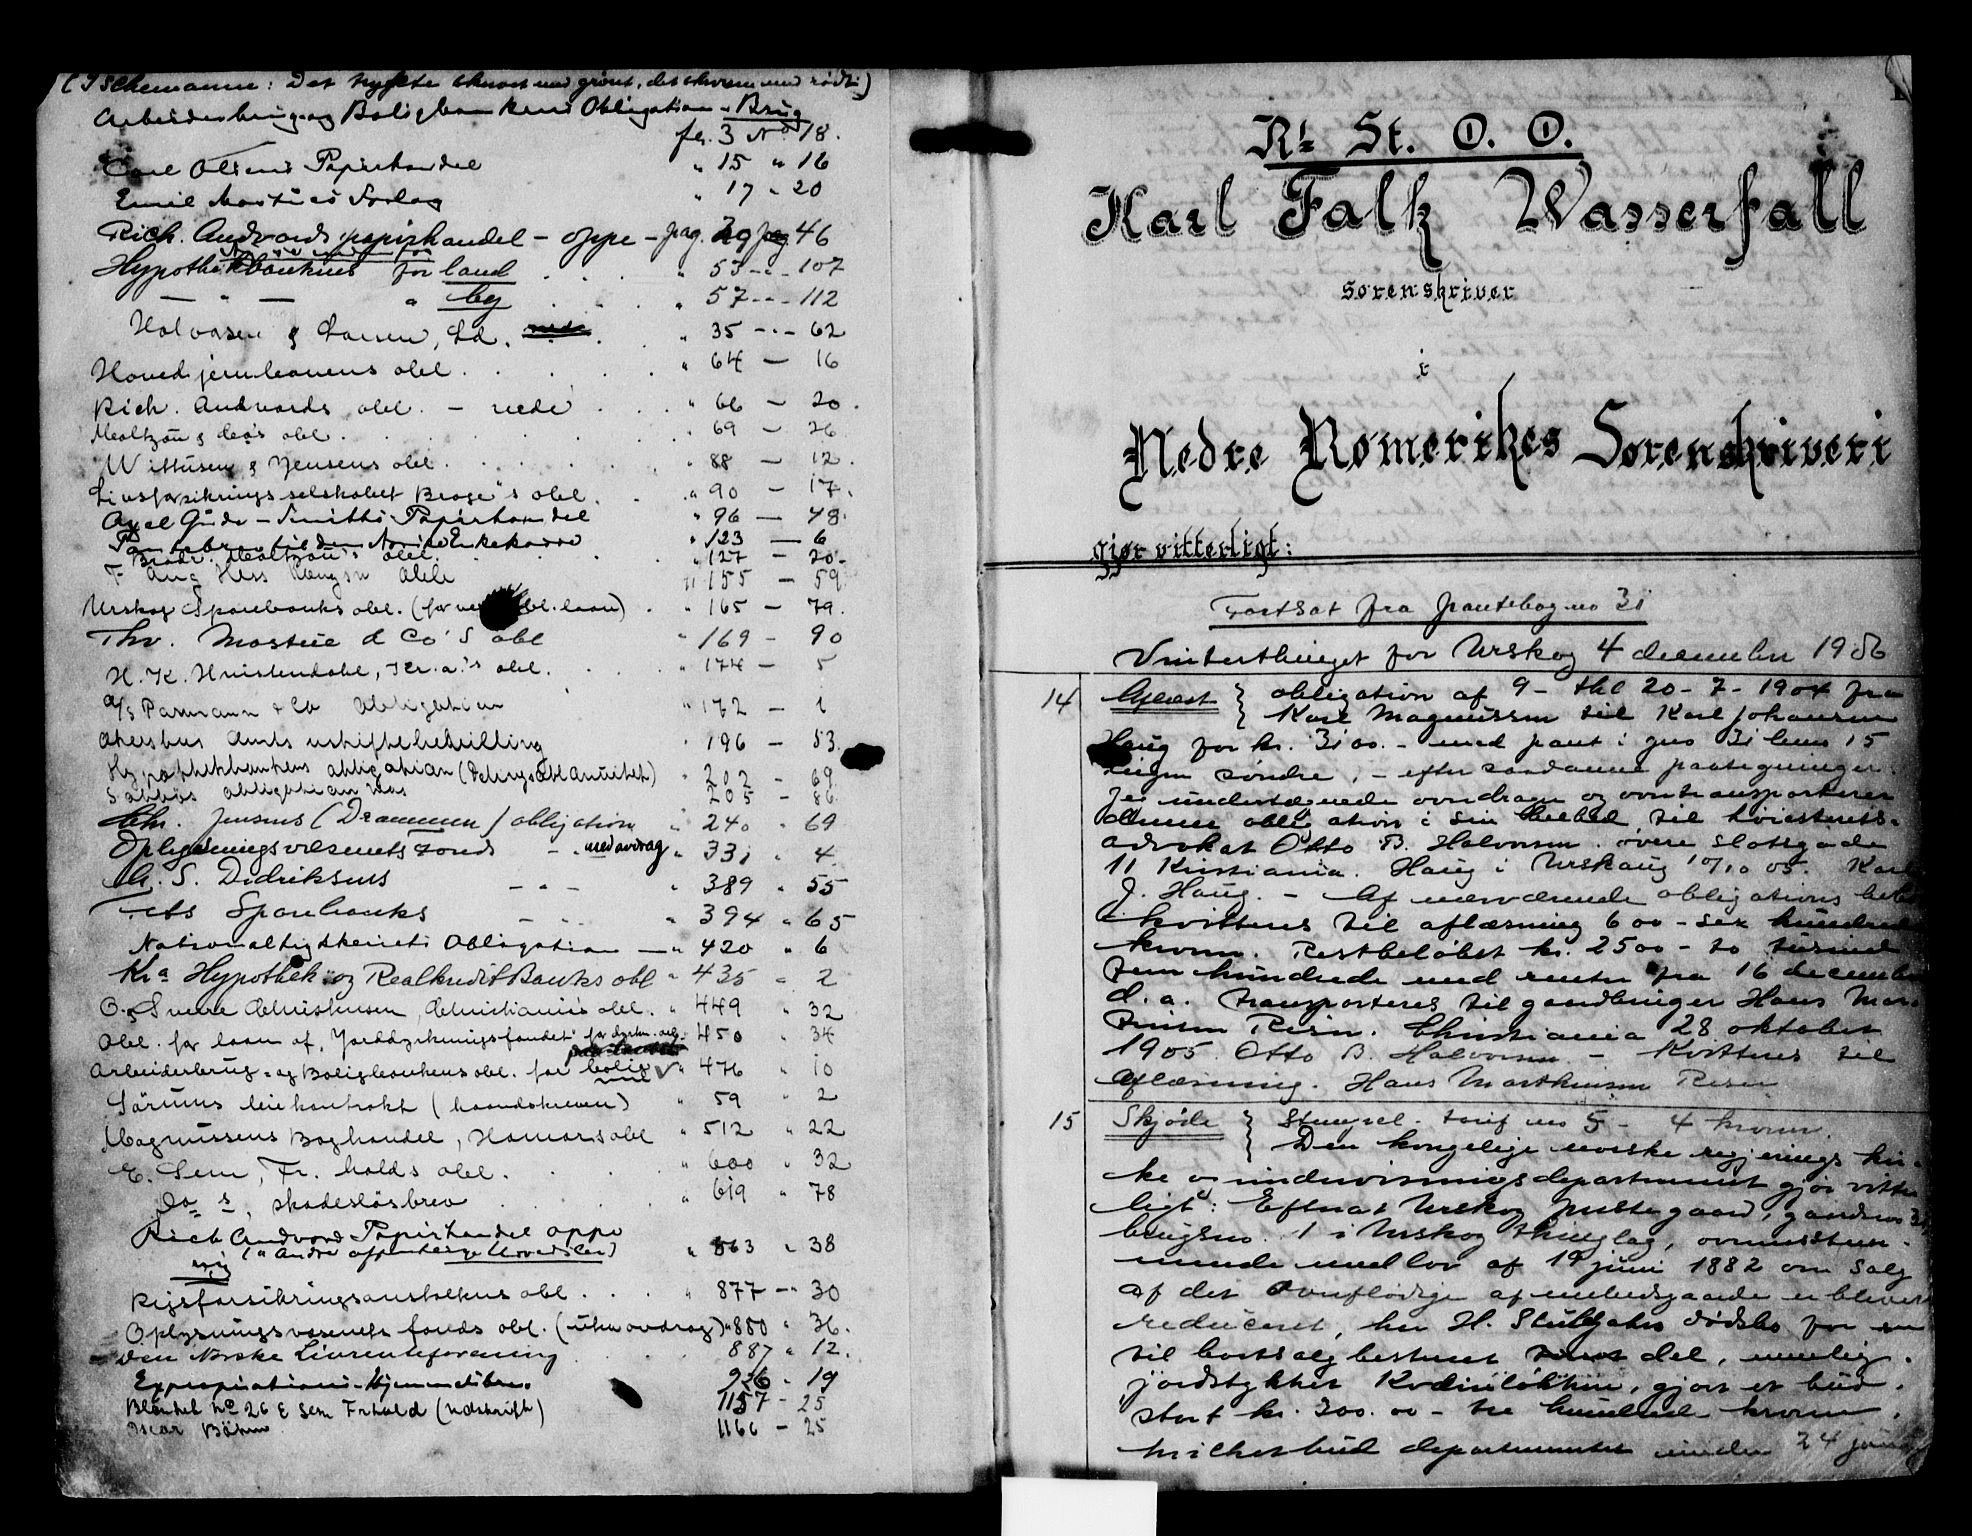 (I Schemaerne: Det trykte skrevet med grønt, det skrevne med rødt)
Arbeiderbrug og Boligbankens Obligation - Brug
fol. 3 No 18.
Carl Olsens Papirhandel " 15 " 16
Emil Mostues Forlag " 17 " 20
Rich. Andvords papirhandel - oppe - pag. 29 pag 46
Hypothekbankens for land " 53 - " - 107
— " — " by " 57 - - - 112
Halvorsen & Larsen, Ld. " 35 - " - 62
Hovedjernbanens obl. " 64 — 16
Rich. Andvords obl. - nede " 66 — 20.
Maltzau & Co's obl. " 69 — 26
Wittusen & Jensens obl. " 88 — 12.
Livsforsikringsselskabet Brage's obl. " 90 — 17.
Axel Gude - Smiths Papirhandel " 96 — 48.
Norske Enkekasse " 123 — 6
Brødr. Maltzau's obl. " 127 — 20.
F. Aug Hess obl. " 155 — 59
Urskog Sparebanks obl. (for laan) " 165 — 79.
Thv. Mostue & Co's obl " 169 - 90
H. K. Hvistendahl, Kr.a.'s obl. " 174 — 5
A/S Parmann & Co Obligation " 172 — 1
Akershus Amts utskiftebestilling " 196 — 53.
Hypothekbankens obligation (Annitet) " 202 — 69.
obligation 205 — 86.
Chr. Jensens (Drammen) obligation " 240 " 69
Oplysningsvæsenets Fonds - " med avdrag " 331 " 4
A. S. Didriksens — " — " 389 " 55
Fets Sparebanks — " " 394 " 65
Nationaltrykkeriets Obligation — " 420 " 6
Kra Hypothek- og Realkredit Banks obl " 435 " 2
O. Sverre Christensen, Christiania's obl. " 449 " 32
Obl. for laan af Jorddyrkningsfondet for " 450 " 34
Arbeiderbrug- og Boligbankens obl. for bolig " 476 " 10
Sørums leiekontrakt (haandskreven) " 59 " 2
Magnussens Boghandel, Hamars obl " 512 " 22
E. Sem, Fr. halds obl. " 600 " 32
Do s, skadesløsbrev " 619 " 78
Rich Andvord Papirhandel oppe
(" Andre offentlige Hovedsler) " 863 " 38
ny
Rigsforsikringsanstaltens obl. " 877 - " 30
Oplysningsvæsenets fonds obl. (uten avdrag) " 880 " 36.
Den Norske Livrenteforening 887 " 12.
Expropriations-Hjemmelsbr. 926 - 19
Blanket No 26 E Sem Frhald (Udskrift) 1157 - 25
Oscar Bøhm 1166 - 25
Rt St. O. O.
Karl Falk Wasserfall
sorenskriver
i
Nedre Romerikes Sorenskriveri
gjør vitterligt:
Fortsat fra pantebog no 31
Vinterthinget for Urskog 4 december 1906
14 Avlæst } obligation af 9- thl 20-7-1904 fra
Karl Magnussen til Karl Johansen
Haug for kr. 3100.- med pant i gno 31 bno 15
søndre, - efter saadanne paategninger:
Jeg undertegnede overdrager og overtransporterer
denne obligation i sin helhed til høiesterets-
advokat Otto B. Halvorsen øvere slotsgade
11 Kristiania. Haug i Urskaug 10/10 05. Karl
J. Haug. - Af nærværende obligations beløb
kvitteres til aflæsning 600 - sex hundrede
kroner. Restbeløbet kr. 2500 - to tusind
fem hundrede med renter fra 16 december
d.a. transporteres til gaardbruger Hans Mar-
tinsen Risen. Christiania 28 oktober
1905 Otto B. Halvorsen - Kvitteres til
aflæsning. Hans Marthinsen Risen
15 Skjøde } Stempel. tarif no 5 - 4 kroner.
Den kongelige norske regjerings kir-
ke og undervisningsdepartement gjør vitter
ligt: Efterat Urskog prestegaard, gaardsno
brugsno. 1 i Urskog thinglag, overensstem-
mende med lov af 19 juni 1882 om salg
af det overflødige af embedsgaarde er blevet
reduceret, har H. Stubljans dødsbo for en
til bortsalg bestemt del, nemlig
jordstykket Kværnløkken, gjort et bud
stort kr. 300.00 - tre hundrede kroner,
hvilket bud departementet under 24 januar